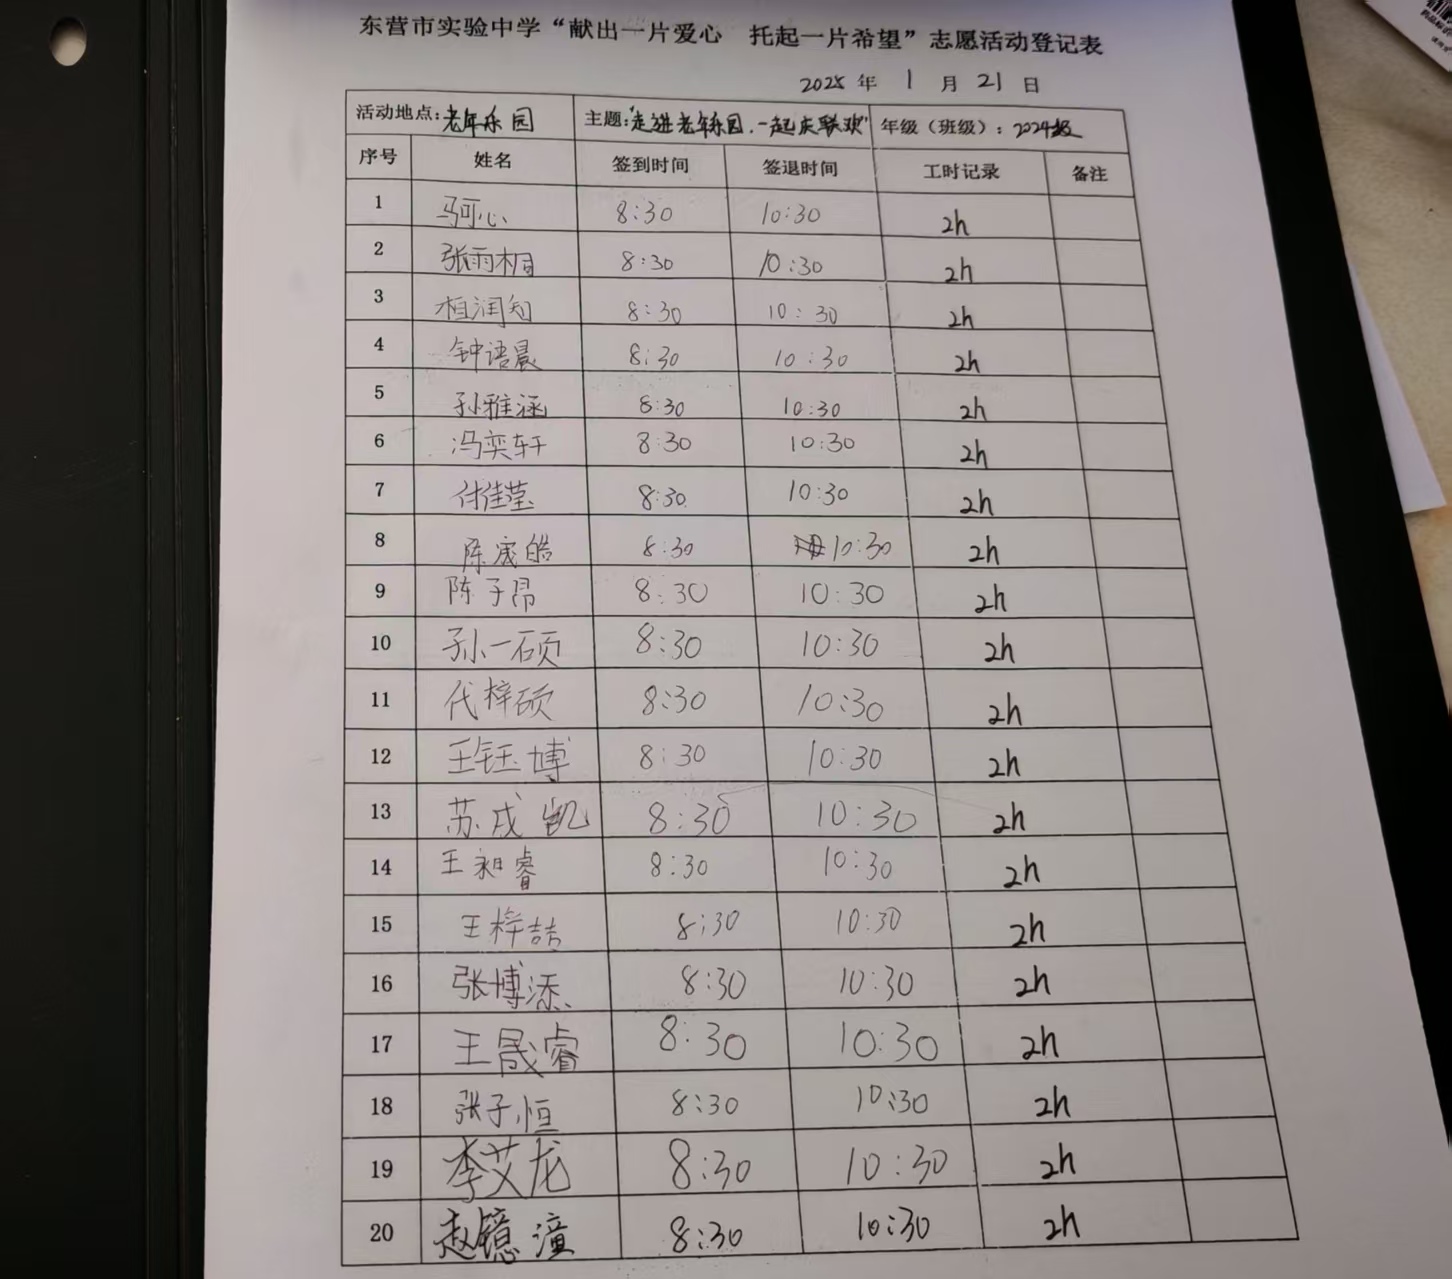 东营市实验中学“献出一片爱心 托起一片希望”志愿活动登记表
2025 年 1 月 21 日
活动地点:老年乐园 主题:“走进老年乐园,一起庆联欢” 年级(班级):2024级
序号 姓名 签到时间 签退时间 工时记录 备注
1 马可心 8:30 10:30 2h
2 张雨桐 8:30 10:30 2h
3 相润知 8:30 10:30 2h
4 钟语晨 8:30 10:30 2h
5 孙雅涵 8:30 10:30 2h
6 冯奕轩 8:30 10:30 2h
7 付佳莹 8:30 10:30 2h
8 陈宬皓 8:30 10:30 2h
9 陈子昂 8:30 10:30 2h
10 孙一硕 8:30 10:30 2h
11 代梓硕 8:30 10:30 2h
12 王钰博 8:30 10:30 2h
13 苏成凯 8:30 10:30 2h
14 王昶睿 8:30 10:30 2h
15 王梓喆 8:30 10:30 2h
16 张博添 8:30 10:30 2h
17 王晟睿 8:30 10:30 2h
18 张子恒 8:30 10:30 2h
19 李艾龙 8:30 10:30 2h
20 赵镱潼 8:30 10:30 2h